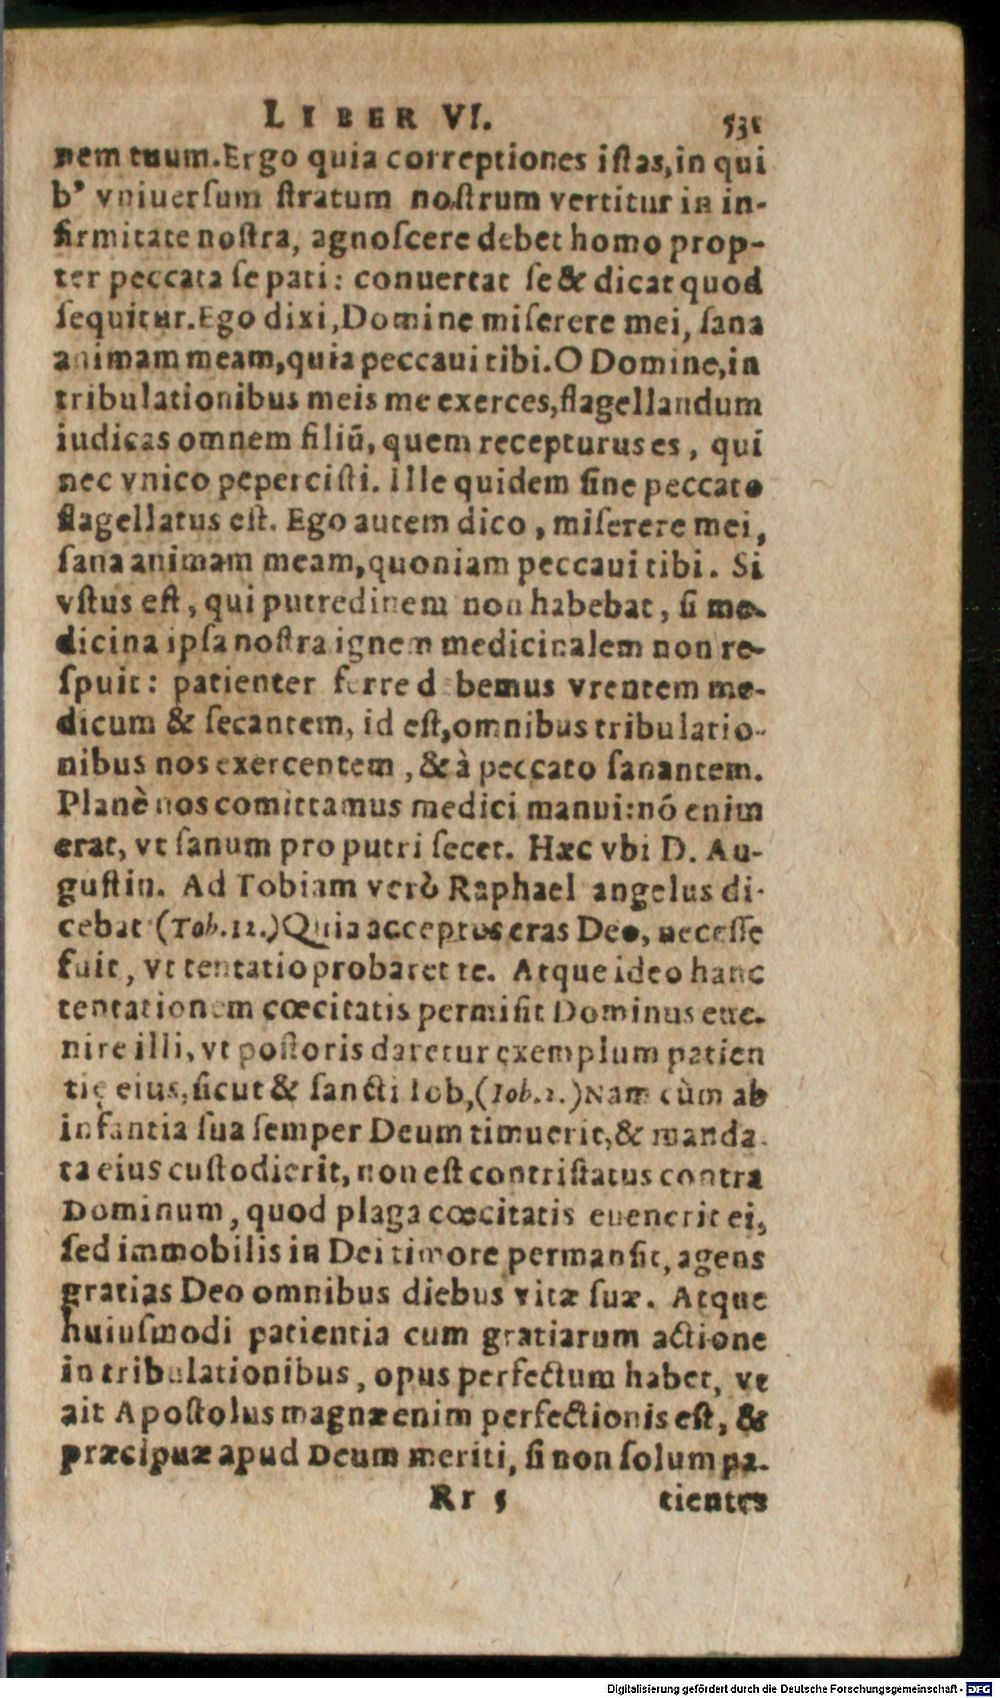 LIBER VI. 531
nem tuum. Ergo quia correptiones istas, in qui
b⁹ vniuersum stratum nostrum vertitur in in-
firmitate nostra, agnoscere debet homo prop-
ter peccata se pati: conuertat se & dicat quod
sequitur. Ego dixi, Domine miserere mei, sana
animam meam, quia peccaui tibi. O Domine, in
tribulationibus meis me exerces, flagellandum
iudicas omnem filiū, quem recepturus es, qui
nec vnico pepercisti. Ille quidem sine peccato
flagellatus est. Ego autem dico, miserere mei,
sana animam meam, quoniam peccaui tibi. Si
vstus est, qui putredinem non habebat, si me-
dicina ipsa nostra ignem medicinalem non re-
spuit: patienter ferre debemus vrentem me-
dicum & secantem, id est, omnibus tribulatio-
nibus nos exercentem, & à peccato sanantem.
Planè nos comittamus medici manui: nō enim
erat, vt sanum pro putri secet. Hæc vbi D. Au-
gustin. Ad Tobiam verò Raphael angelus di-
cebat (Tob. 12.) Quia acceptus eras Deo, necesse
fuit, vt tentatio probaret te. Atque ideo hanc
tentationem cœcitatis permisit Dominus eue-
nire illi, vt postoris daretur exemplum patien
tię eius, sicut & sancti Iob, (Iob. 1.) Nam cùm ab
infantia sua semper Deum timuerit, & manda-
ta eius custodierit, non est contristatus contra
Dominum, quod plaga cœcitatis euenerit ei,
sed immobilis in Dei timore permansit, agens
gratias Deo omnibus diebus vitæ suæ. Atque
huiusmodi patientia cum gratiarum actione
in tribulationibus, opus perfectum habet, vt
ait Apostolus magnæ enim perfectionis est, &
præcipuæ apud Deum meriti, si non solum pa-
Rr 5 tientes
Digitalisierung gefördert durch die Deutsche Forschungsgemeinschaft - DFG